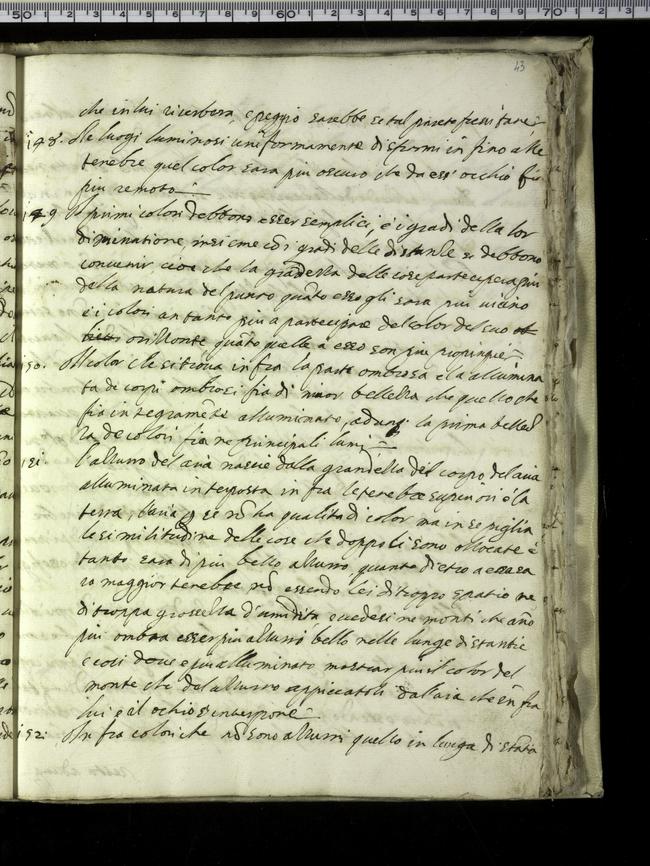 43
che in lui riverbera, e peggio sarebbe se tal parete fussi fare
148. Ne luogi luminosi uneformamente disformi in fino alle
tenebre quel color sara piu oscuro che da ess' occhio fia
piu remoto
149. I primi colori debbono esser semplici, e i gradi della lor
diminatione, insieme cõ i gradi delle distantie si debbono
convenir cioe che la grandezza delle cose partecipera piu
della natura del punto quãto esse gli sara piu vicino
e i colori an tanto piu a participare del color del suo
orizzonte quãto quelle a esso son piu propinquie
150. Il color che si trova in fra la parte ombrosa e la allumina
ta de corpi ombrosi fia di minor bellezza che quello che
fia integramẽte alluminato, adunq; la prima bellez
za de colori fia ne principali lumi
151. l'azzurro del aria nascie dalla grandezza del corpo del aria
alluminata interposta in fra le tenebre superiori e la
terra, l'aria p se nõ ha qualita di color ma in se piglia
le similitudine delle cose che doppo lei sono collocate e
tanto sara di piu bello azzurro, quanto dietro a essa sa
ra maggior tenebre nõ essendo lei di troppo spatio ne
di troppa grossezza d'umidita e vedesi ne monti che ãno
piu ombra esser piu azzurro bello nelle lunge distantie
e cosi dove e piu alluminato mostrar piu il color del
monte che del azzurro appiccatoli dall'aria che in fra
lui e il ochio s'interpone
152. In fra colori che nõ sono azzurri quello in lunga distãtia